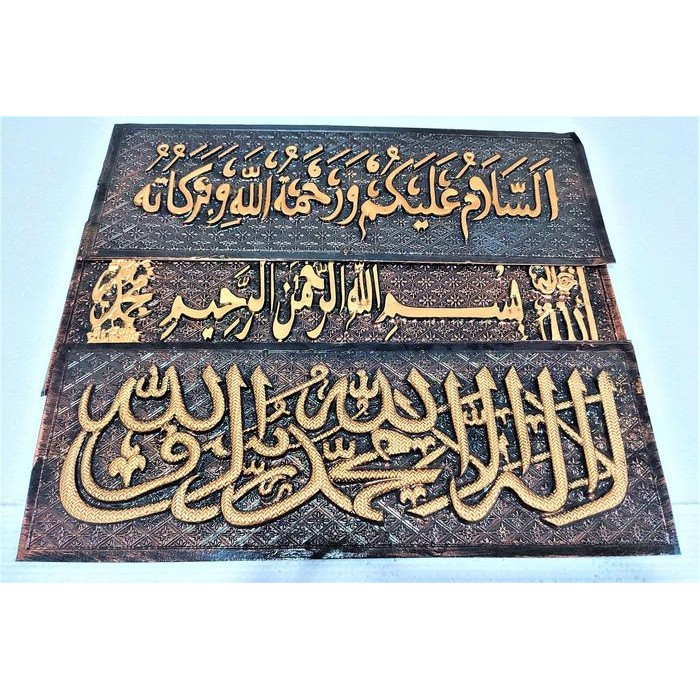 اَلسَّلَامُ عَلَيْكُمْ وَرَحْمَةُ اللّٰهِ وَبَرَكَاتُهُ
بِسْمِ اللّٰهِ الرَّحْمٰنِ الرَّحِيمِ
لا اله الا الله محمد رسول الله